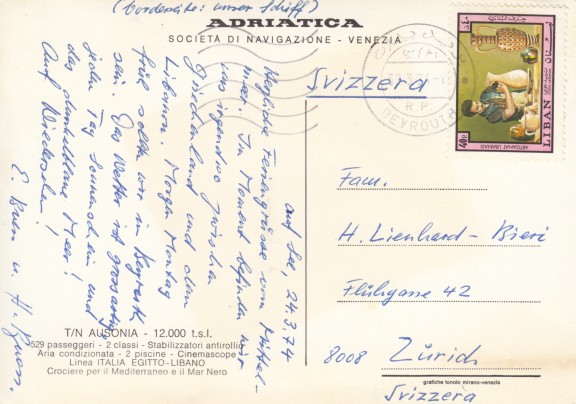 (Vorderseite: unser Schiff)
ADRIATICA
SOCIETÀ DI NAVIGAZIONE - VENEZIA
auf See, 24.3.74
Herzliche Feriengrüsse vom Mittel-
meer. Im Moment befinden wir
uns irgendwo zwischen
Griechenland und dem
Libanon. Morgen Montag
früh sollten wir in Beyrouth
sein. Das Wetter ist grossartig,
jeden Tag Sonnenschein und
das dunkelblaue Meer!
Auf Wiedersehen!
E. u. H.
T/N AUSONIA - 12.000 t.s.l.
529 passeggeri - 2 classi - Stabilizzatori antirollio
Aria condizionata - 2 piscine - Cinemascope
Linea ITALIA EGITTO-LIBANO
Crociere per il Mediterraneo e il Mar Nero
Svizzera
R.P.
BEYROUTH
40P
ARTISANAT LIBANAIS
LIBAN
Fam.
H. Lienhard-Bieri
Flühgasse 42
8008 Zürich
Svizzera
grafiche tonolo mirano-venezia